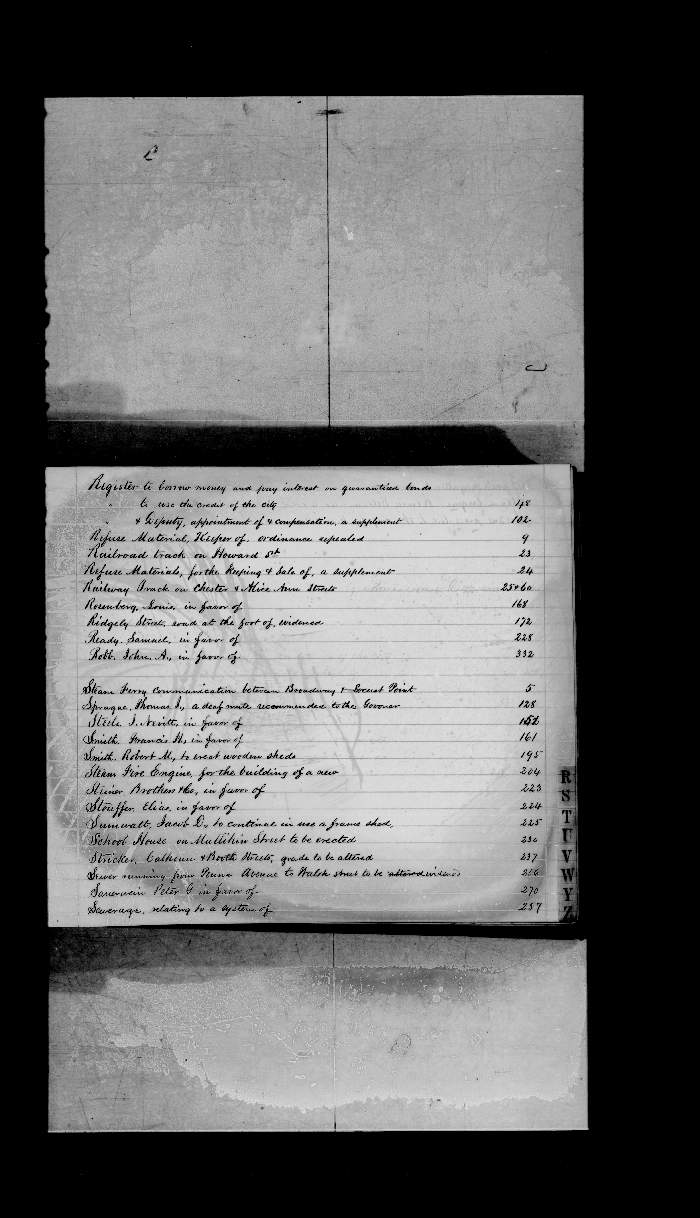 Register to borrow money and pay interest on guaranteed bonds
" to use the credit of the city 48
" & Deputy, appointment of & compensation, a supplement 102
Refuse Material, Keeper of, ordinance repealed 9
Railroad track on Howard St 23
Refuse Materials, for the keeping & Sale of, a supplement 24
Railway Track on Chester & Alice Ann Streets 25+60
Rosenberg, Louis, in favor of 168
Ridgely Street, road at the foot of, widened 172
Ready, Samuel, in favor of 228
Robb, John, A., in favor of 332
Steam Ferry communication between Broadway & Locust Point 5
Sprague, Thomas J., a deaf mute recommended to the Govenor 128
Steele, J. Nevitt, in favor of 152
Smith, Francis H., in favor of 161
Smith, Robert M., to erect wooden sheds 195
Steam Fire Engine, for the building of a new 204
Steiner Brothers & Co., in favor of 223
Stouffer, Elias, in favor of 224
Sumwalt, Jacob D., to continue in use a frame shed, 225
School House on Mullikin Street to be erected 230
Stricker, Calhoun & Booth Streets, grade to be altered 237
Sewer running from Penna Avenue to Walsh street to be altered widened 256
Sauerwein Peter G in favor of 270
Sewerage, relating to a system of 257
R
S
T
U
V
W
Y
Z